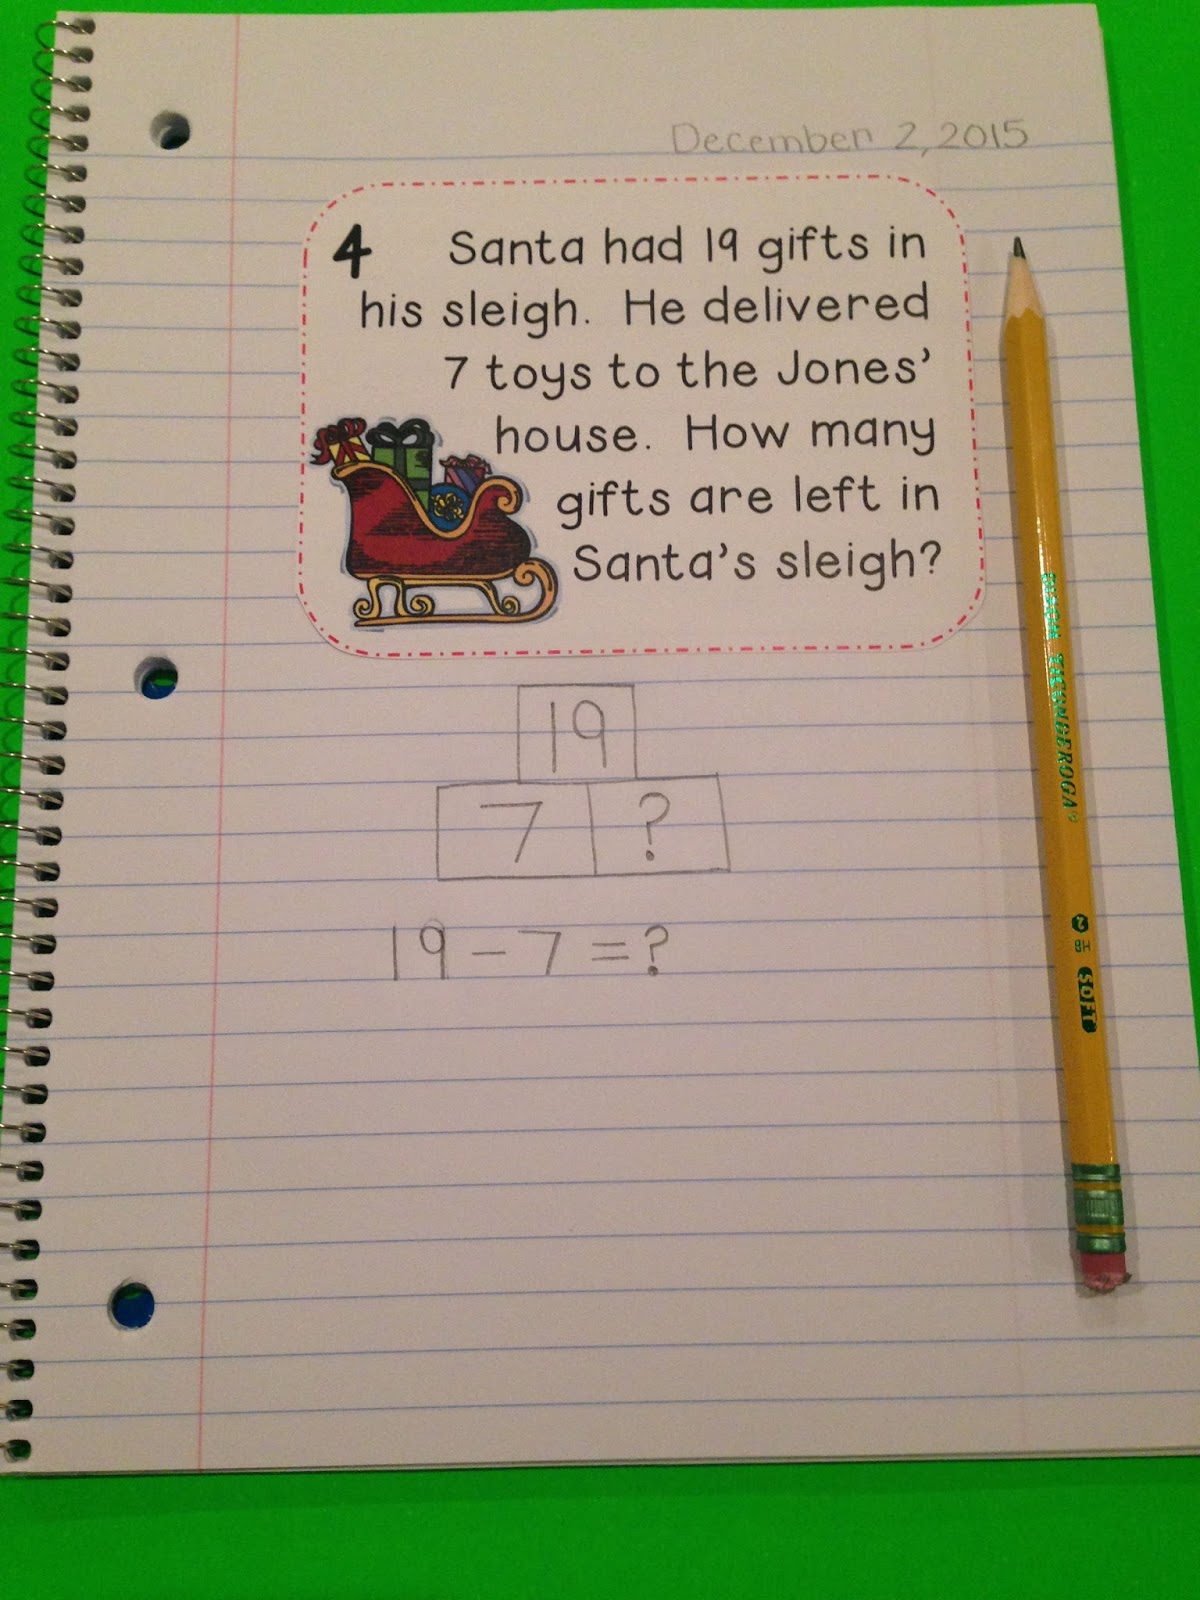 December 2, 2015
4 Santa had 19 gifts in
his sleigh. He delivered
7 toys to the Jones'
house. How many
gifts are left in
Santa's sleigh?
19
7 ?
19 - 7 = ?
DIXON TICONDEROGA®
2 HB SOFT